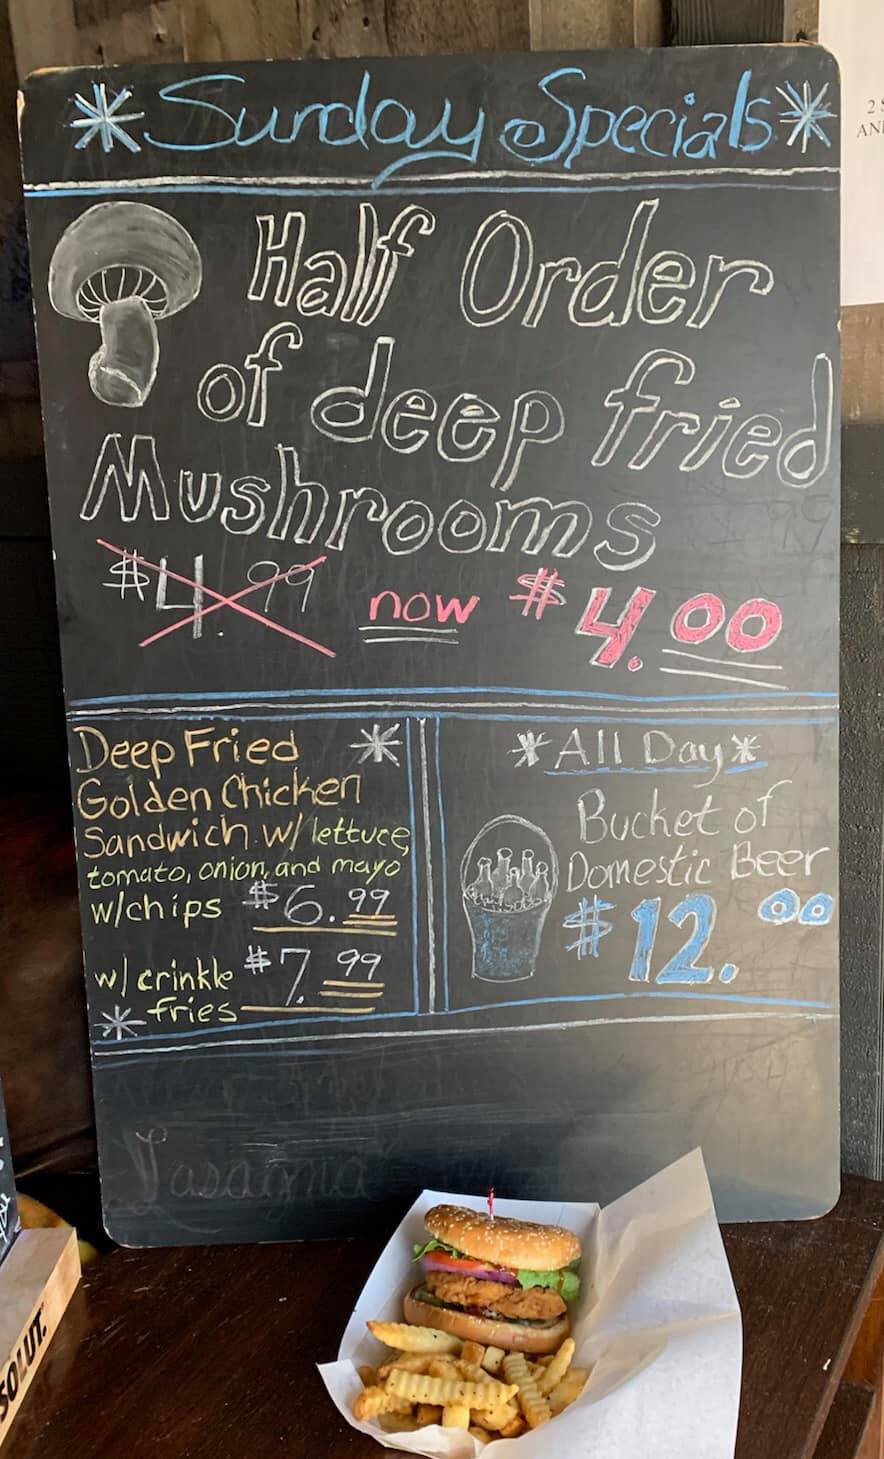 * Sunday Specials *
Half Order
of deep fried
Mushrooms
$4.99 now $4.00
Deep Fried *
Golden Chicken
Sandwich w/ lettuce,
tomato, onion, and mayo
w/chips $6.99
w/ crinkle $7.99
* fries
* All Day *
Bucket of
Domestic Beer
$12.00
Lasagna
SOLUT.
2
AN